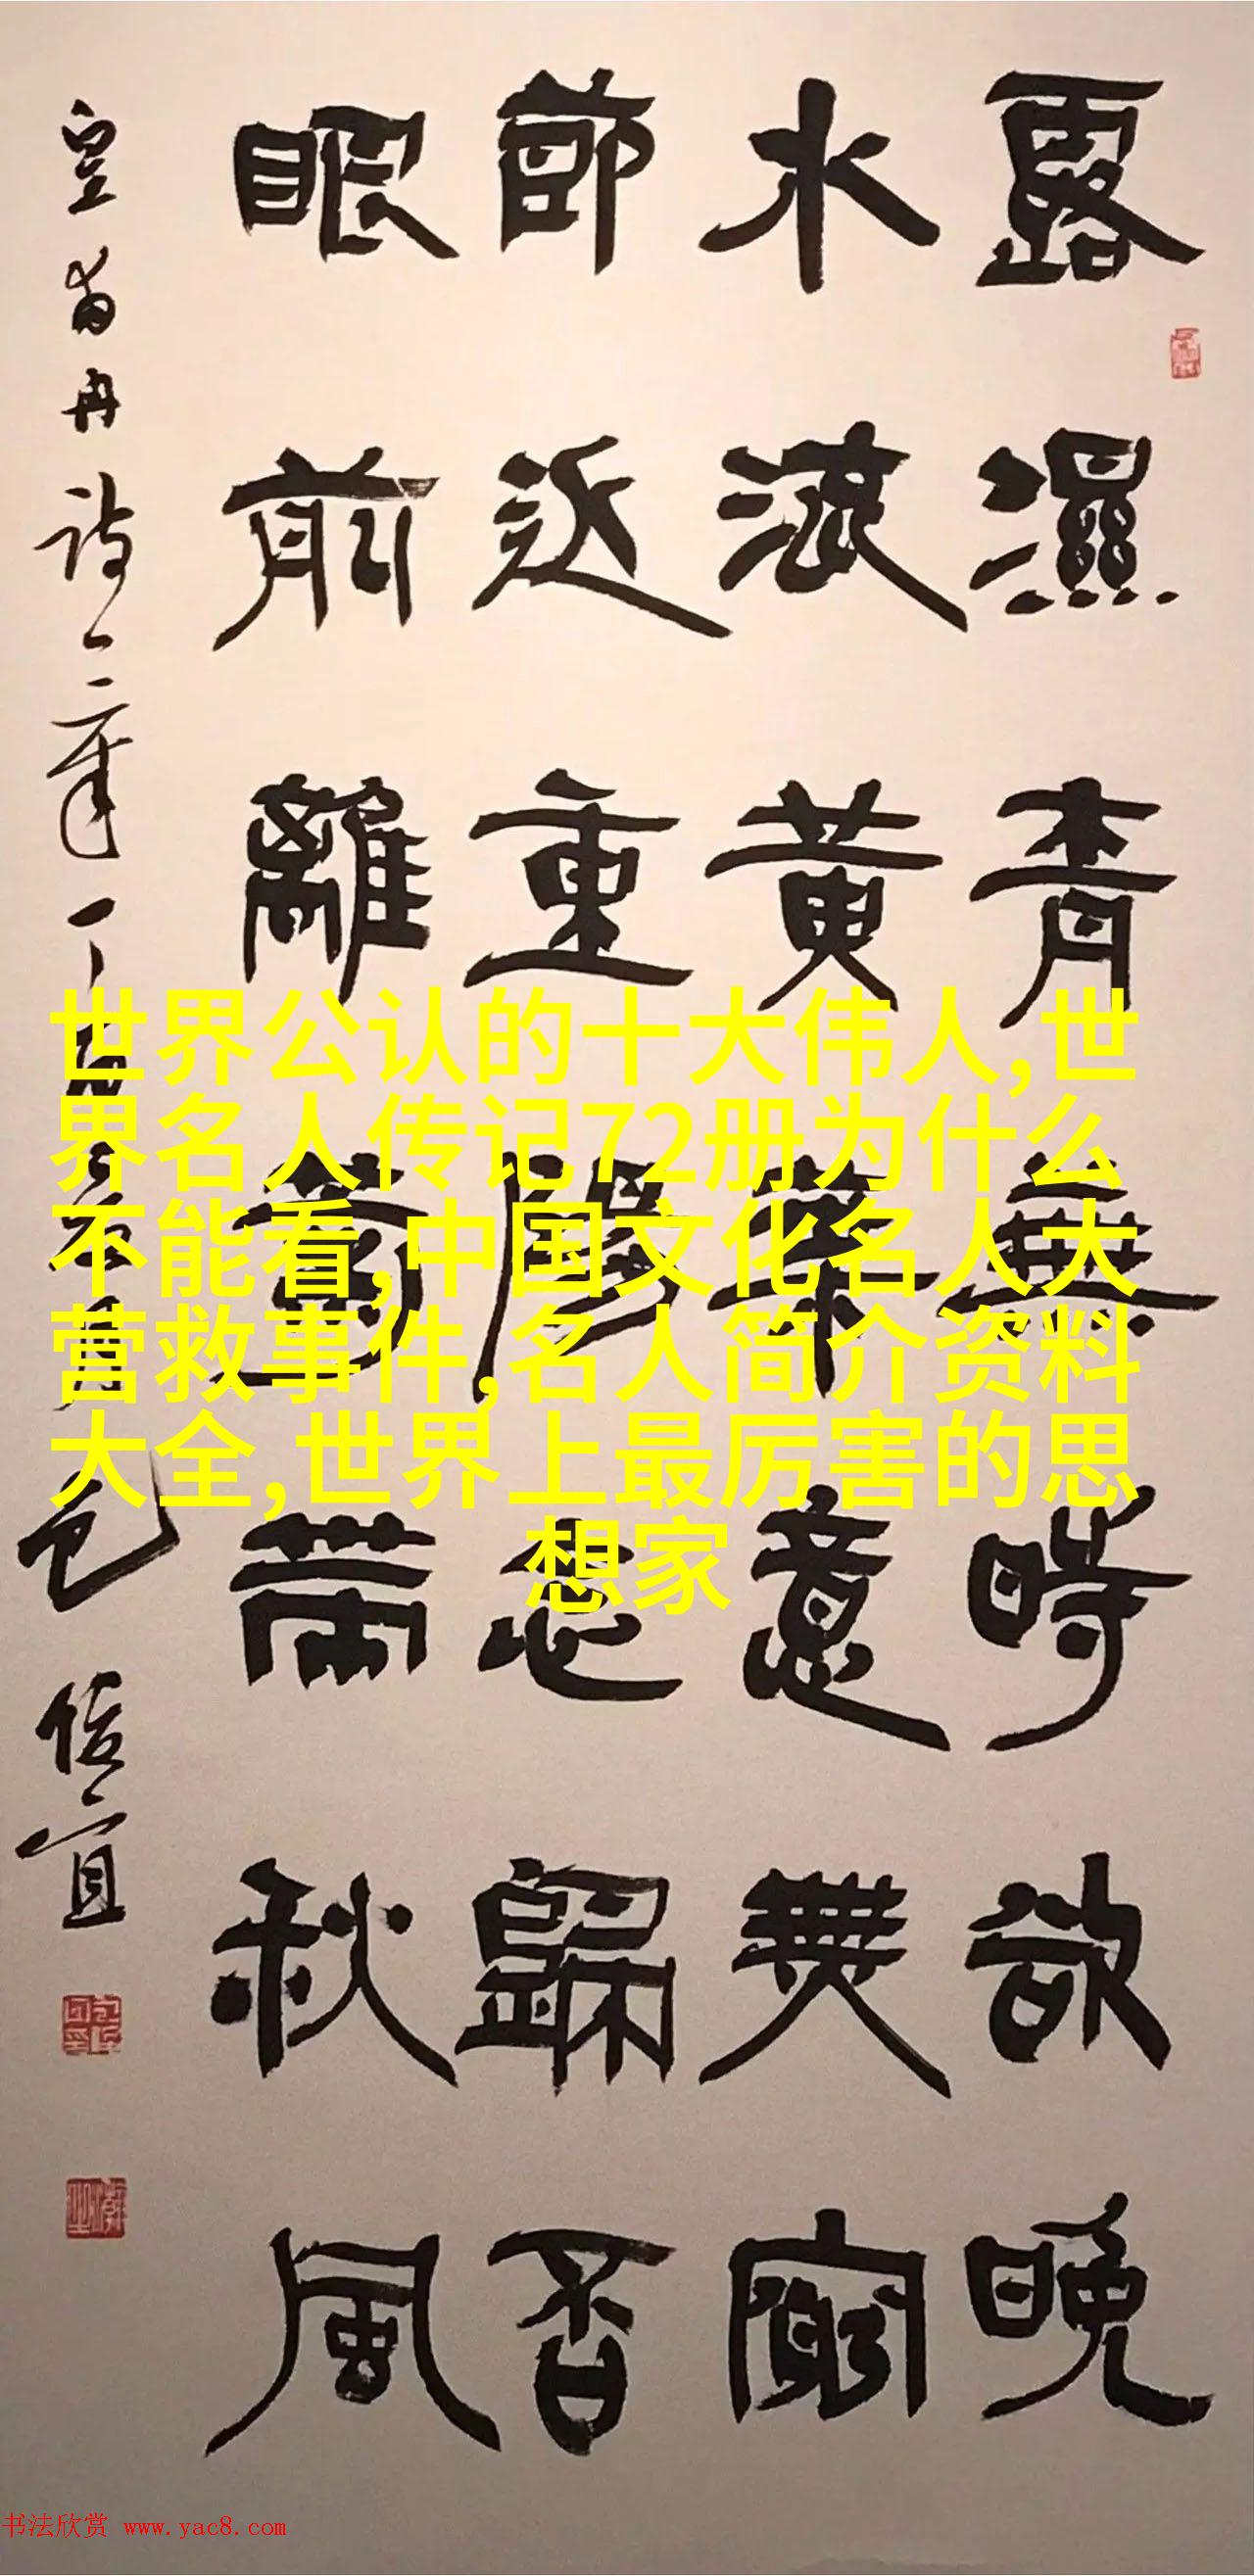 露濕青蕪時欲晚
水流黃葉意無窮
節近重陽念歸否
眼前離菊帶秋風
皇甫冉詩一章丁
世界公认的十大伟人,世
界名人传记72册为什么
不能看,中国文化名人大
营救事件,名人简介资料
大全,世界上最厉害的思
想家
书法欣赏 www.yac8.com